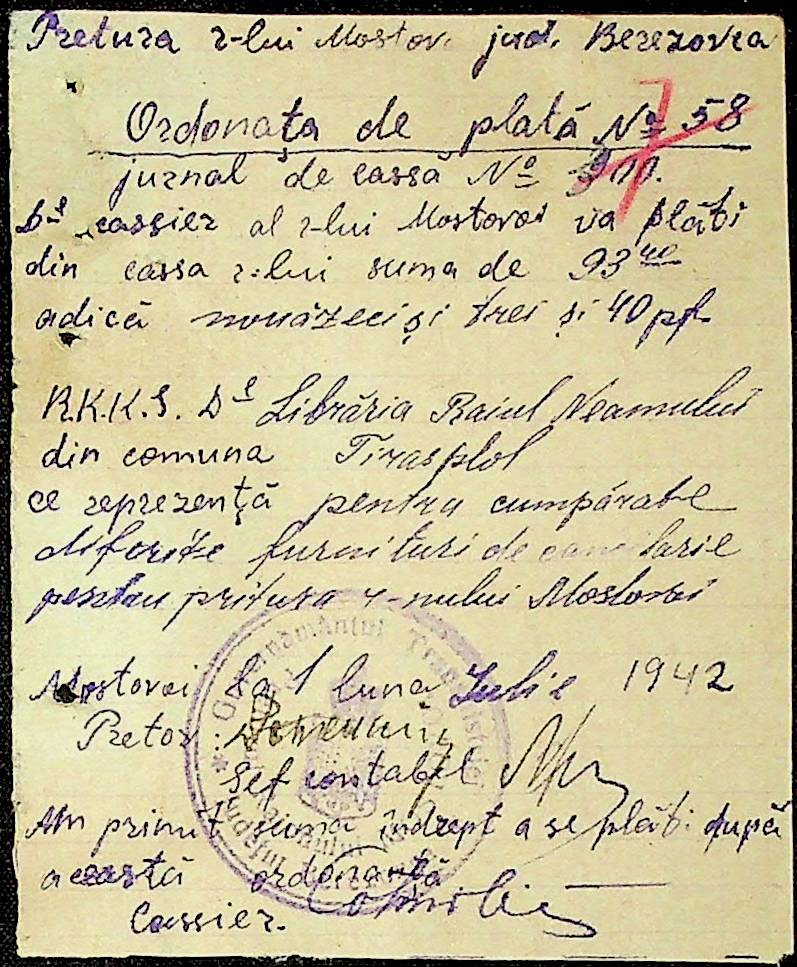 Pretura r-lui Mostov. jud. Berezovca
Ordonața de plată № 58
jurnal de cassă №
Dl cassier al r-lui Mostovoi va plăti
din cassa r-lui suma de 93 40
adică nouăzeci și trei și 40 pf.
R.K.K.S. Dl Librăria Raiul Neamului
din comuna Tiraspol
ce reprezență pentru cumpărate
diferite furnituri de cancelarie
pentru pritura r-nului Mostovoi
Mostovoi la 1 luna Iulie 1942
Pretor:
Șef contabil
Am primit suma îndrept a se plăti după
această ordonanță
Cassier.
Guvernământul Transnistriei
Județul